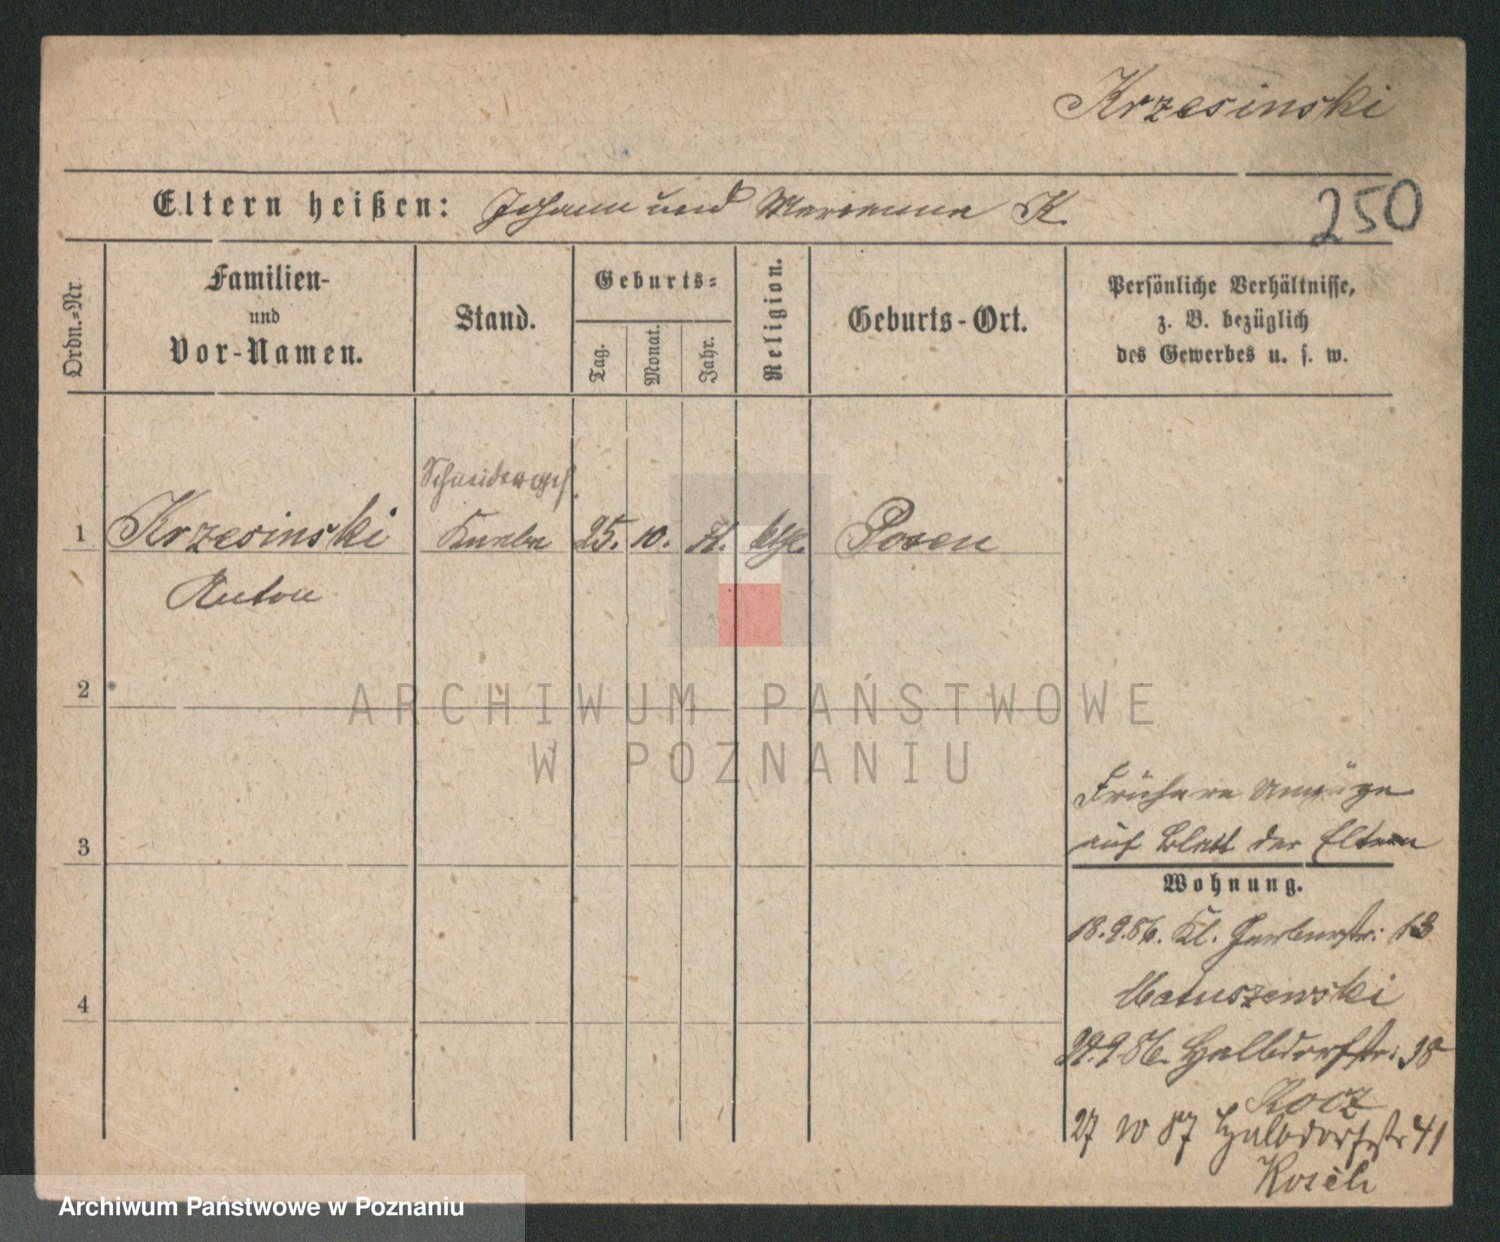 Krzesinski
Eltern heißen: Johann und Marianna K.
250
Ordn.-Nr.
Familien-
und
Vor-Namen.
Stand.
Geburts-
Tag.
Monat.
Jahr.
Religion.
Geburts-Ort.
Persönliche Verhältnisse,
z. B. bezüglich
des Gewerbes u. s. w.
Schneiderges.
1 Krzesinski Knabe 25. 10. kth. Posen
Anton
2
ARCHIWUM PAŃSTWOWE
W POZNANIU
Frühere Umzüge
auf Blatt der Eltern
3
Wohnung.
18.9.86. Kl. Gerberstr: 13
Matuszewski
4
29.9.86. Halbdorfstr: 38
Kocz
27 10 87 Halbdorfstr 41
Archiwum Państwowe w Poznaniu